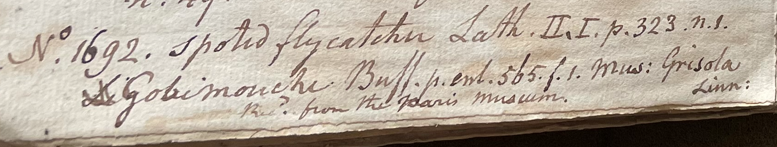 No. 1692. spoted flycatcher Lath. II. I. p. 323. n. 1.
Gobimouche. Buff. p. enl. 565. f. 1. Mus: Grisola
Linn:
Recd. from the Paris Museum.